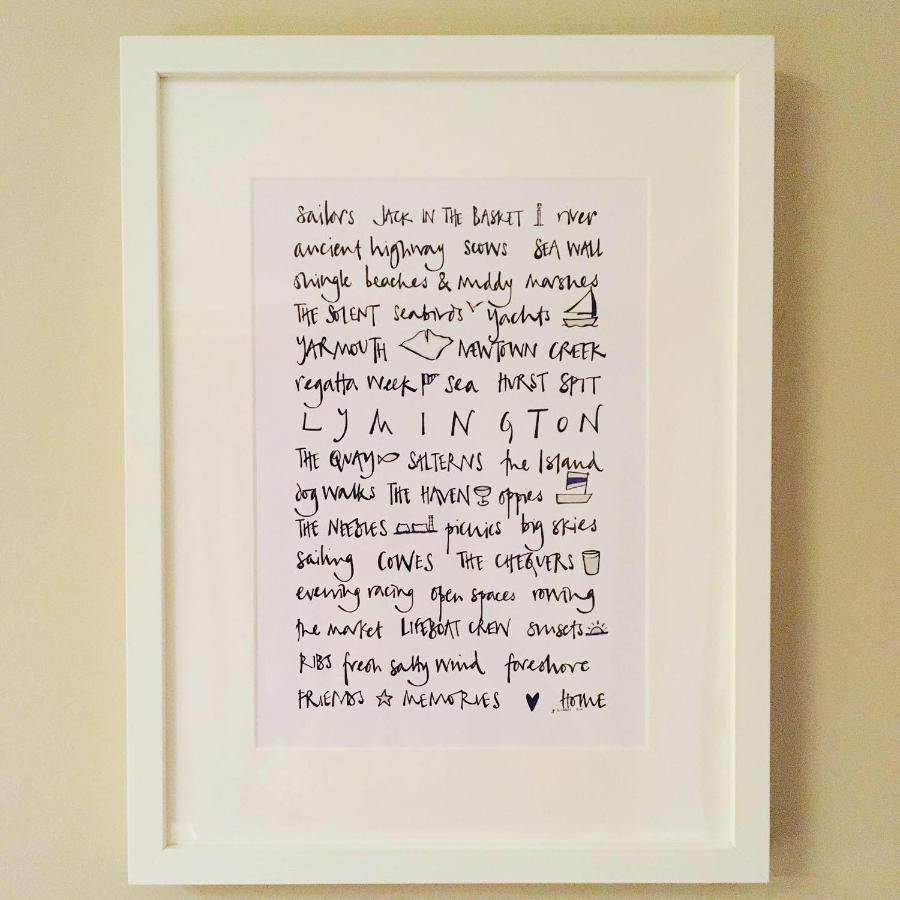 sailors JACK IN THE BASKET river
ancient highway scows SEA WALL
shingle beaches & muddy marshes
THE SOLENT seabirds yachts
YARMOUTH NEWTOWN CREEK
regatta week sea HURST SPIT
LYMINGTON
THE QUAY SALTERNS the Island
dog walks THE HAVEN oppies
THE NEEDLES picnics big skies
sailing COWES THE CHEQUERS
evening racing open spaces rowing
the market LIFEBOAT CREW sunsets
RIBS fresh salty wind foreshore
FRIENDS MEMORIES HOME